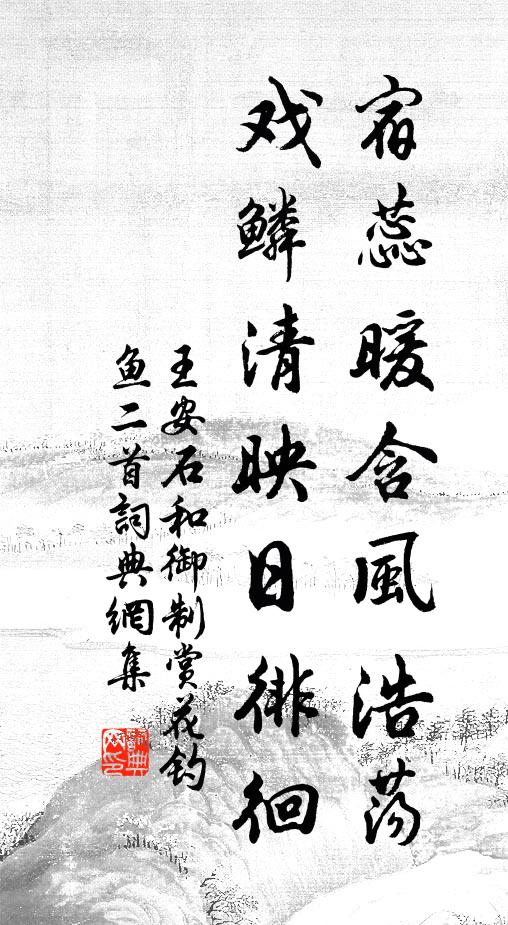 宿蕊暖含風浩荡
戏鱗清映日徘徊
王安石和御制赏花钓
鱼二首詞典網集